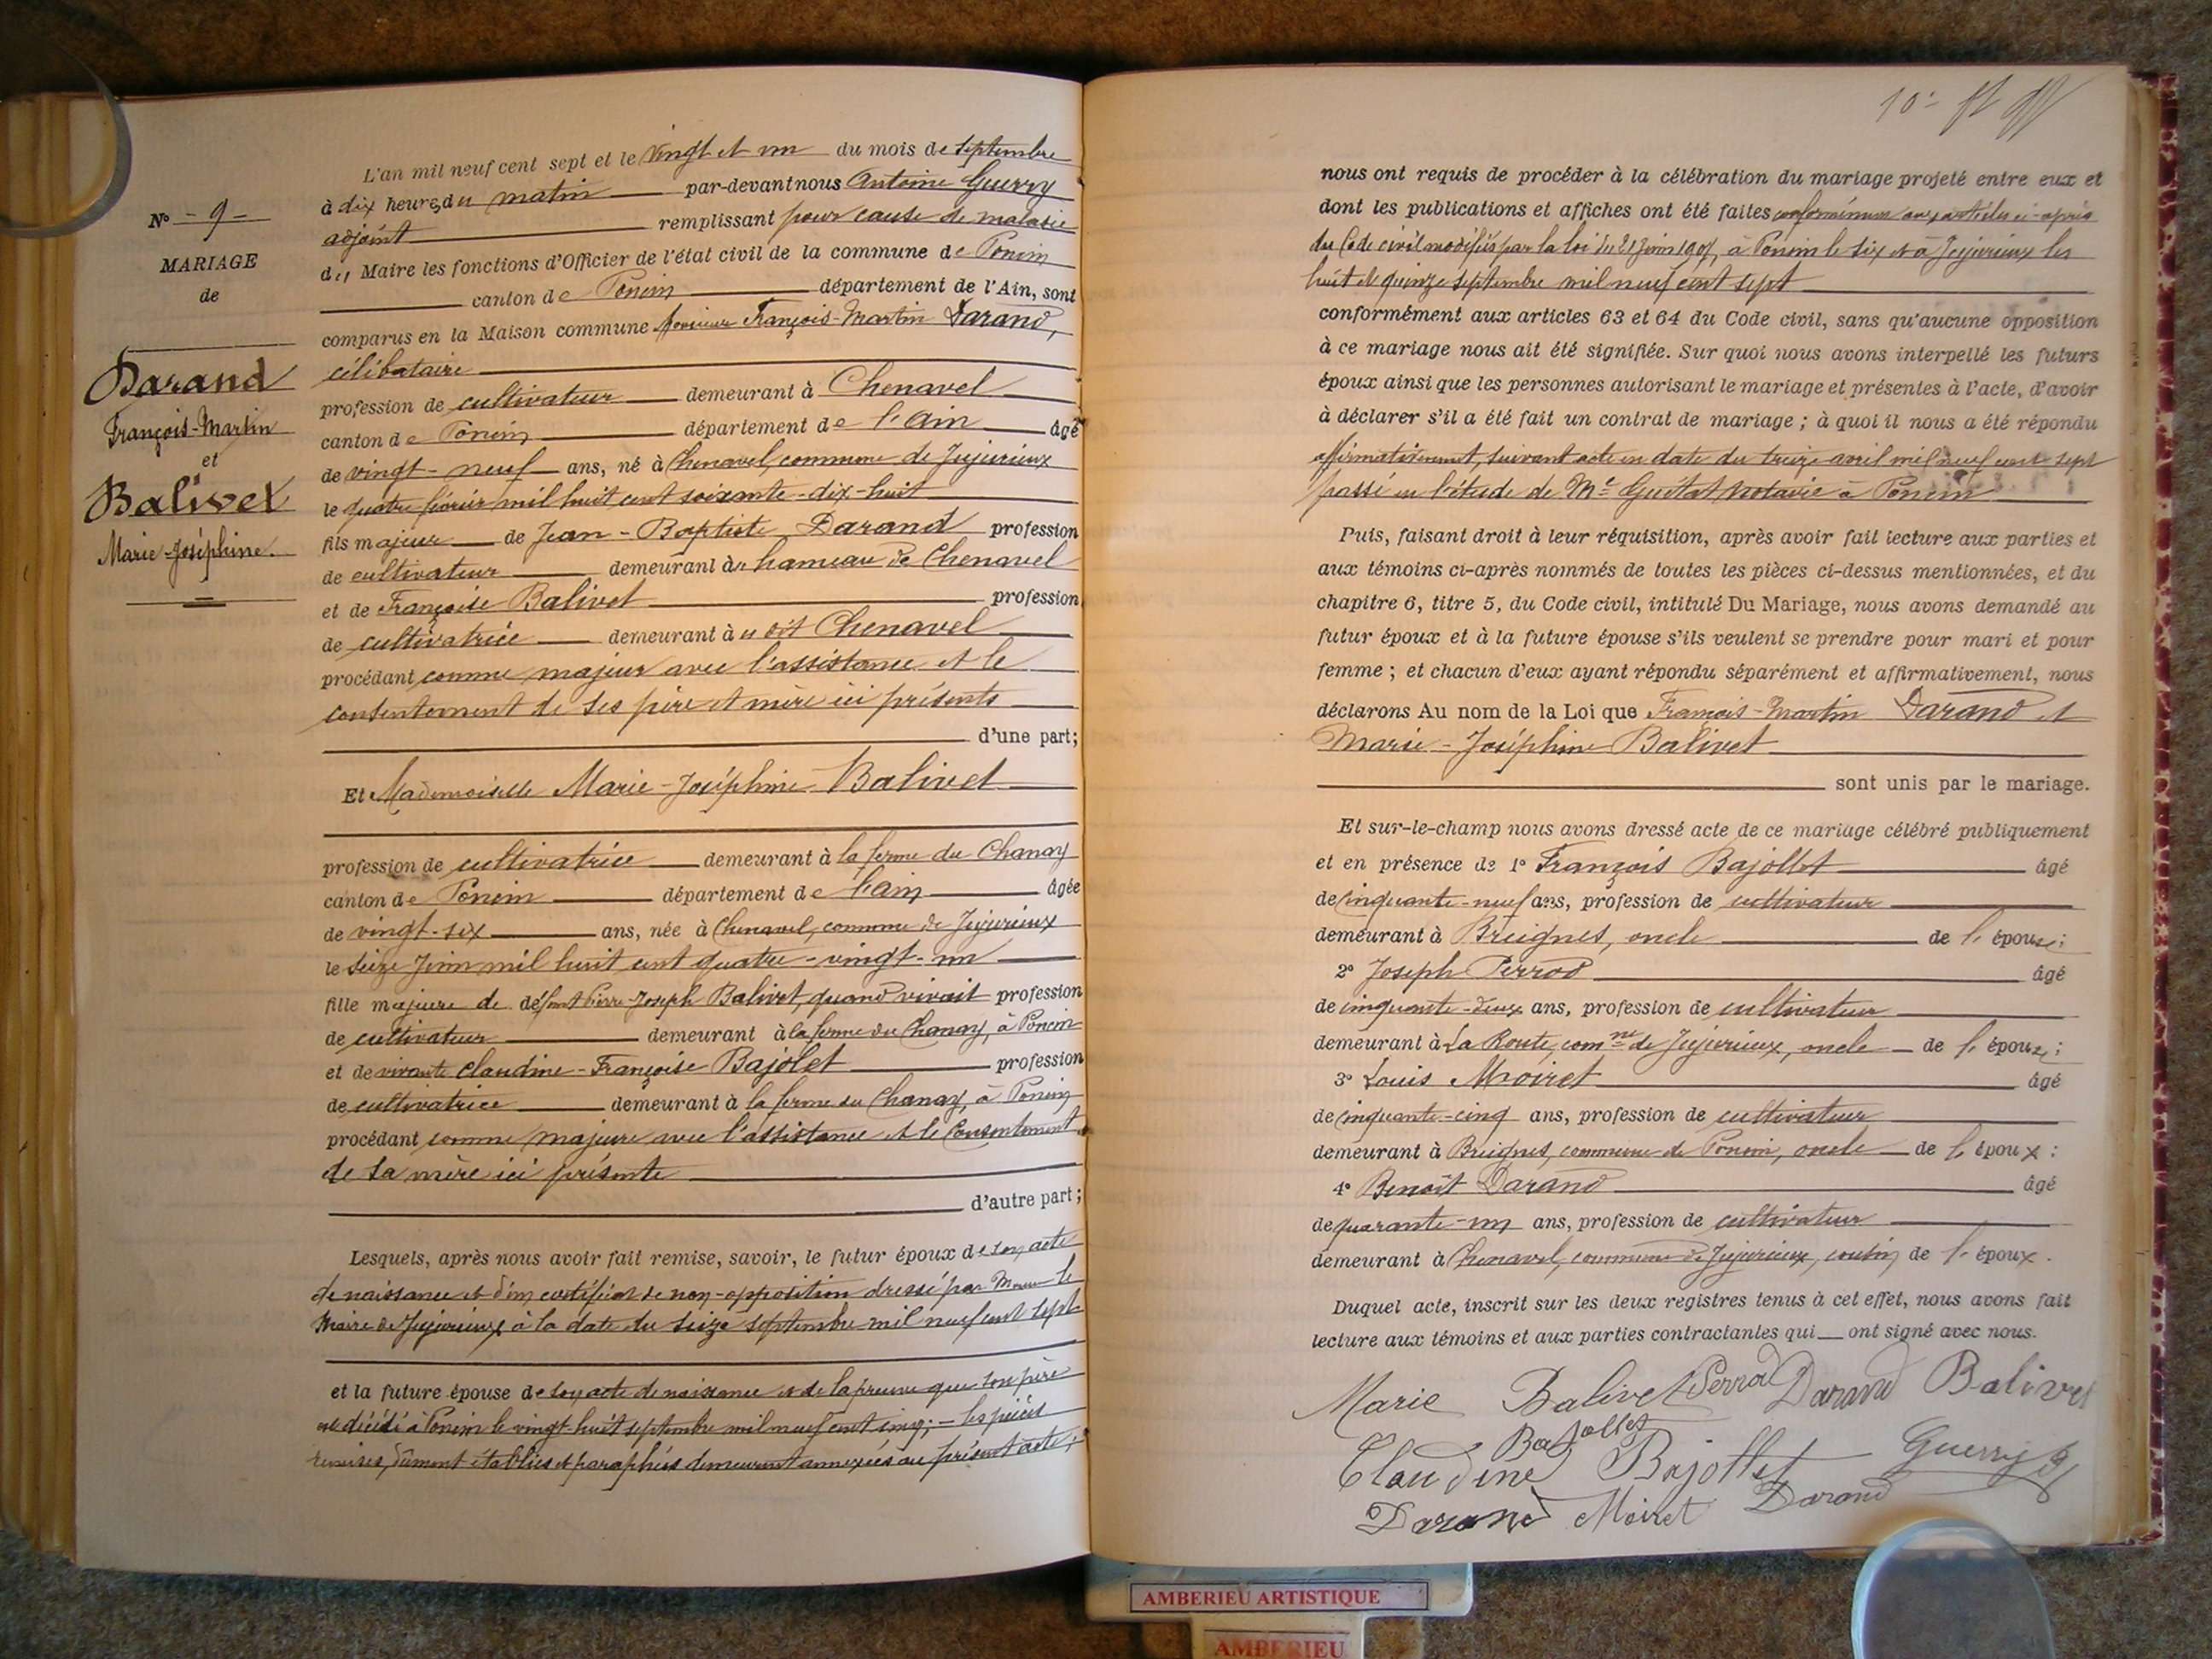 N° - 9 -
MARIAGE
de
Darand
François-Martin
et
Balivet
Marie-Joséphine.
L'an mil neuf cent sept et le vingt et un du mois de septembre
à dix heures du matin par-devant nous Antoine Guerry
adjoint remplissant pour cause de maladie
du Maire les fonctions d'Officier de l'état civil de la commune de Poncin
canton de Poncin département de l'Ain, sont
comparus en la Maison commune Monsieur François-Martin Darand,
célibataire
profession de cultivateur demeurant à Chenavel
canton de Poncin département de l'Ain âgé
de vingt-neuf ans, né à Chenavel, commune de Jujurieux
le quatre février mil huit cent soixante-dix-huit
fils majeur de Jean-Baptiste Darand profession
de cultivateur demeurant au hameau de Chenavel
et de Françoise Balivet profession
de cultivatrice demeurant au dit Chenavel
procédant comme majeur avec l'assistance et le
consentement de ses père et mère ici présents
d'une part;
Et Mademoiselle Marie-Joséphine Balivet
profession de cultivatrice demeurant à la ferme du Chanay
canton de Poncin département de l'Ain âgée
de vingt-six ans, née à Chenavel, commune de Jujurieux
le seize Juin mil huit cent quatre-vingt-un
fille majeure de défunt Pierre-Joseph Balivet, quand vivait profession
de cultivateur demeurant à la ferme du Chanay, à Poncin
et de vivante Claudine-Françoise Bajolet profession
de cultivatrice demeurant à la ferme du Chanay, à Poncin
procédant comme majeure avec l'assistance et le consentement
de sa mère ici présente
d'autre part;
Lesquels, après nous avoir fait remise, savoir, le futur époux de son acte
de naissance et d'un certificat de non-opposition dressé par le
Maire de Jujurieux à la date du seize septembre mil neuf cent sept
et la future épouse de son acte de naissance et de la preuve que son père
est décédé à Poncin le vingt-huit septembre mil neuf cent cinq; - les pièces
remises, dûment établies et paraphées demeurent annexées au présent acte;
10e
nous ont requis de procéder à la célébration du mariage projeté entre eux et
dont les publications et affiches ont été faites conformément aux articles ci-après
du Code civil modifiés par la loi du 21 Juin 1907, à Poncin le six et à Jujurieux les
huit et quinze septembre mil neuf cent sept
conformément aux articles 63 et 64 du Code civil, sans qu'aucune opposition
à ce mariage nous ait été signifiée. Sur quoi nous avons interpellé les futurs
époux ainsi que les personnes autorisant le mariage et présentes à l'acte, d'avoir
à déclarer s'il a été fait un contrat de mariage ; à quoi il nous a été répondu
affirmativement, suivant acte en date du treize avril mil neuf cent sept
passé en l'étude de Me notaire à Poncin
Puis, faisant droit à leur réquisition, après avoir fait lecture aux parties et
aux témoins ci-après nommés de toutes les pièces ci-dessus mentionnées, et du
chapitre 6, titre 5, du Code civil, intitulé Du Mariage, nous avons demandé au
futur époux et à la future épouse s'ils veulent se prendre pour mari et pour
femme ; et chacun d'eux ayant répondu séparément et affirmativement, nous
déclarons Au nom de la Loi que François-Martin Darand et
Marie-Joséphine Balivet
sont unis par le mariage.
Et sur-le-champ nous avons dressé acte de ce mariage célébré publiquement
et en présence de 1° François Bajollet âgé
de cinquante-neuf ans, profession de cultivateur
demeurant à Breignes, oncle de l'épouse;
2° Joseph Perrod âgé
de cinquante-deux ans, profession de cultivateur
demeurant à La Route, comne de Jujurieux, oncle de l'épouse;
3° Louis Moiret âgé
de cinquante-cinq ans, profession de cultivateur
demeurant à Breignes, commune de Poncin, oncle de l'époux;
4° Benoît Darand âgé
de quarante-un ans, profession de cultivateur
demeurant à Chenavel, commune de Jujurieux, cousin de l'époux.
Duquel acte, inscrit sur les deux registres tenus à cet effet, nous avons fait
lecture aux témoins et aux parties contractantes qui ont signé avec nous.
Marie Balivet Perrod Darand Balivet
Bajollet
Claudine Bajollet Guerry
Darand Moiret Darand
AMBERIEU ARTISTIQUE
AMBERIEU